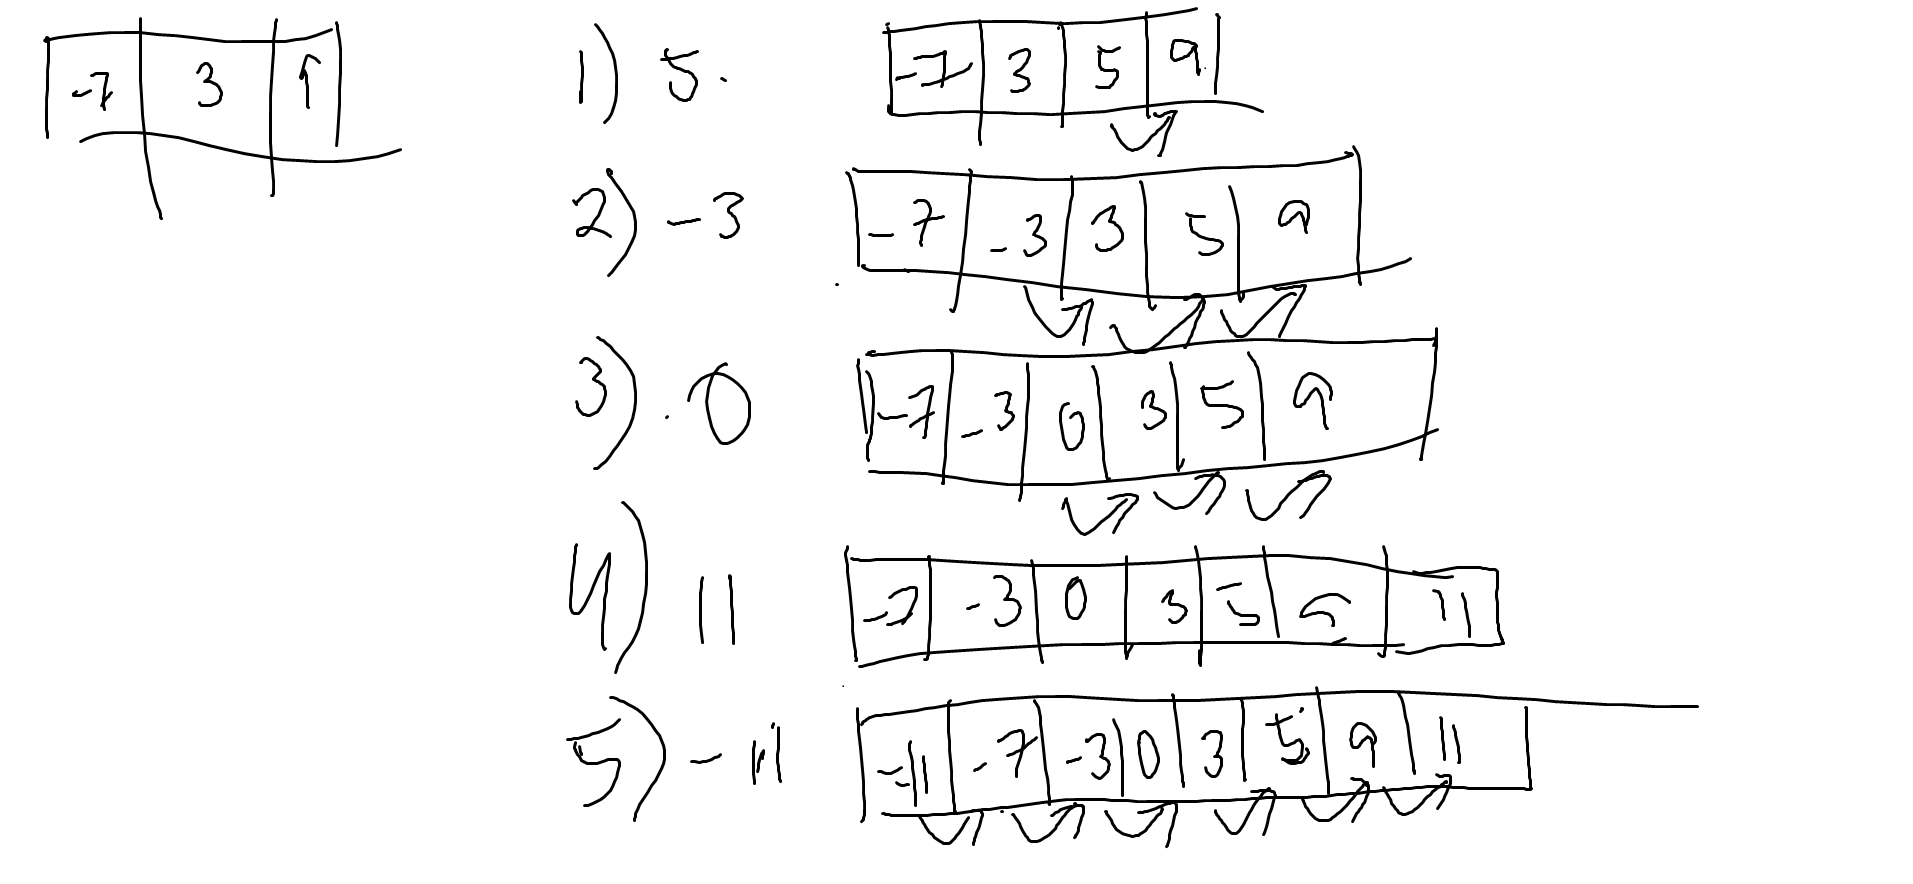 -7 3 9
1) 5. -7 3 5 9
2) -3 -7 -3 3 5 9
3) 0 -7 -3 0 3 5 9
4) 11 -7 -3 0 3 5 9 11
5) -11 -11 -7 -3 0 3 5 9 11